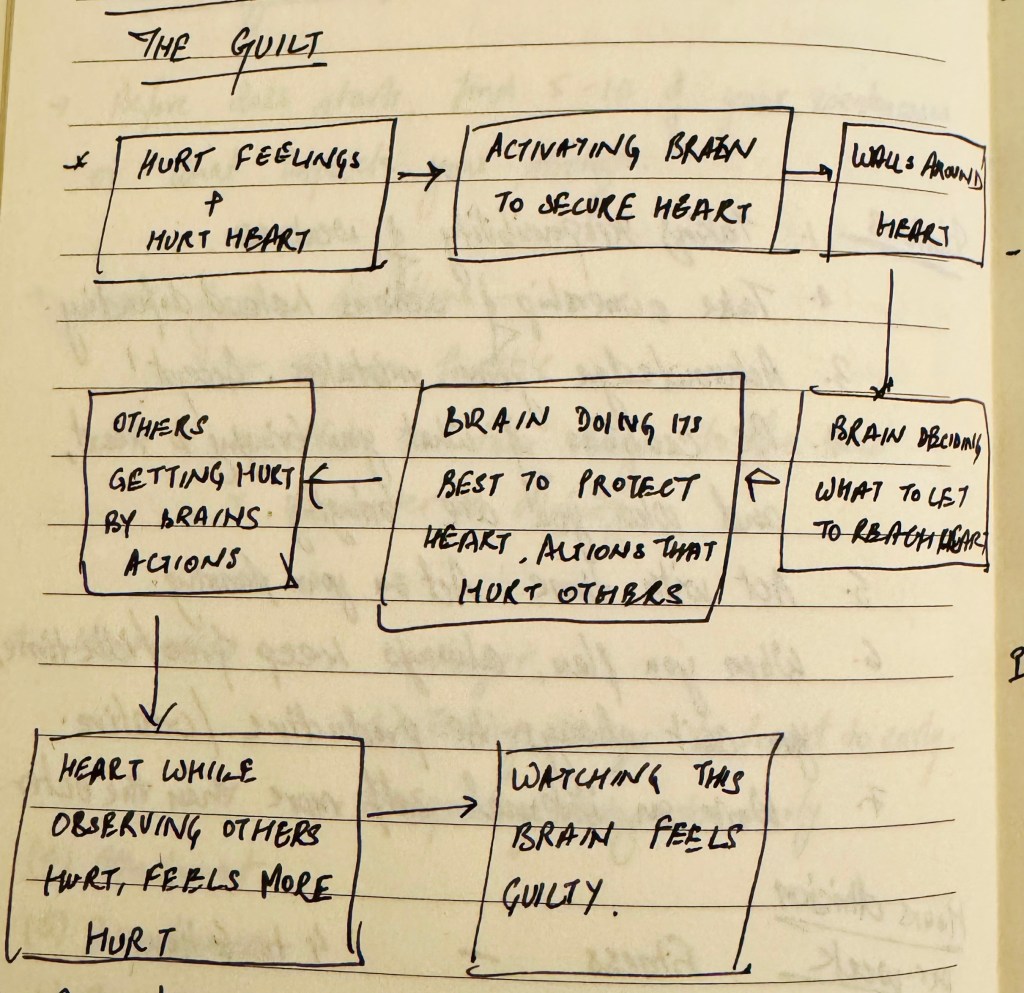 THE GUILT
* HURT FEELINGS
+
HURT HEART
ACTIVATING BRAIN
TO SECURE HEART
WALLS AROUND
HEART
BRAIN DECIDING
WHAT TO LET
TO REACH HEART
BRAIN DOING ITS
BEST TO PROTECT
HEART, ACTIONS THAT
HURT OTHERS
OTHERS
GETTING HURT
BY BRAINS
ACTIONS
HEART WHILE
OBSERVING OTHERS
HURT, FEELS MORE
HURT
WATCHING THIS
BRAIN FEELS
GUILTY.